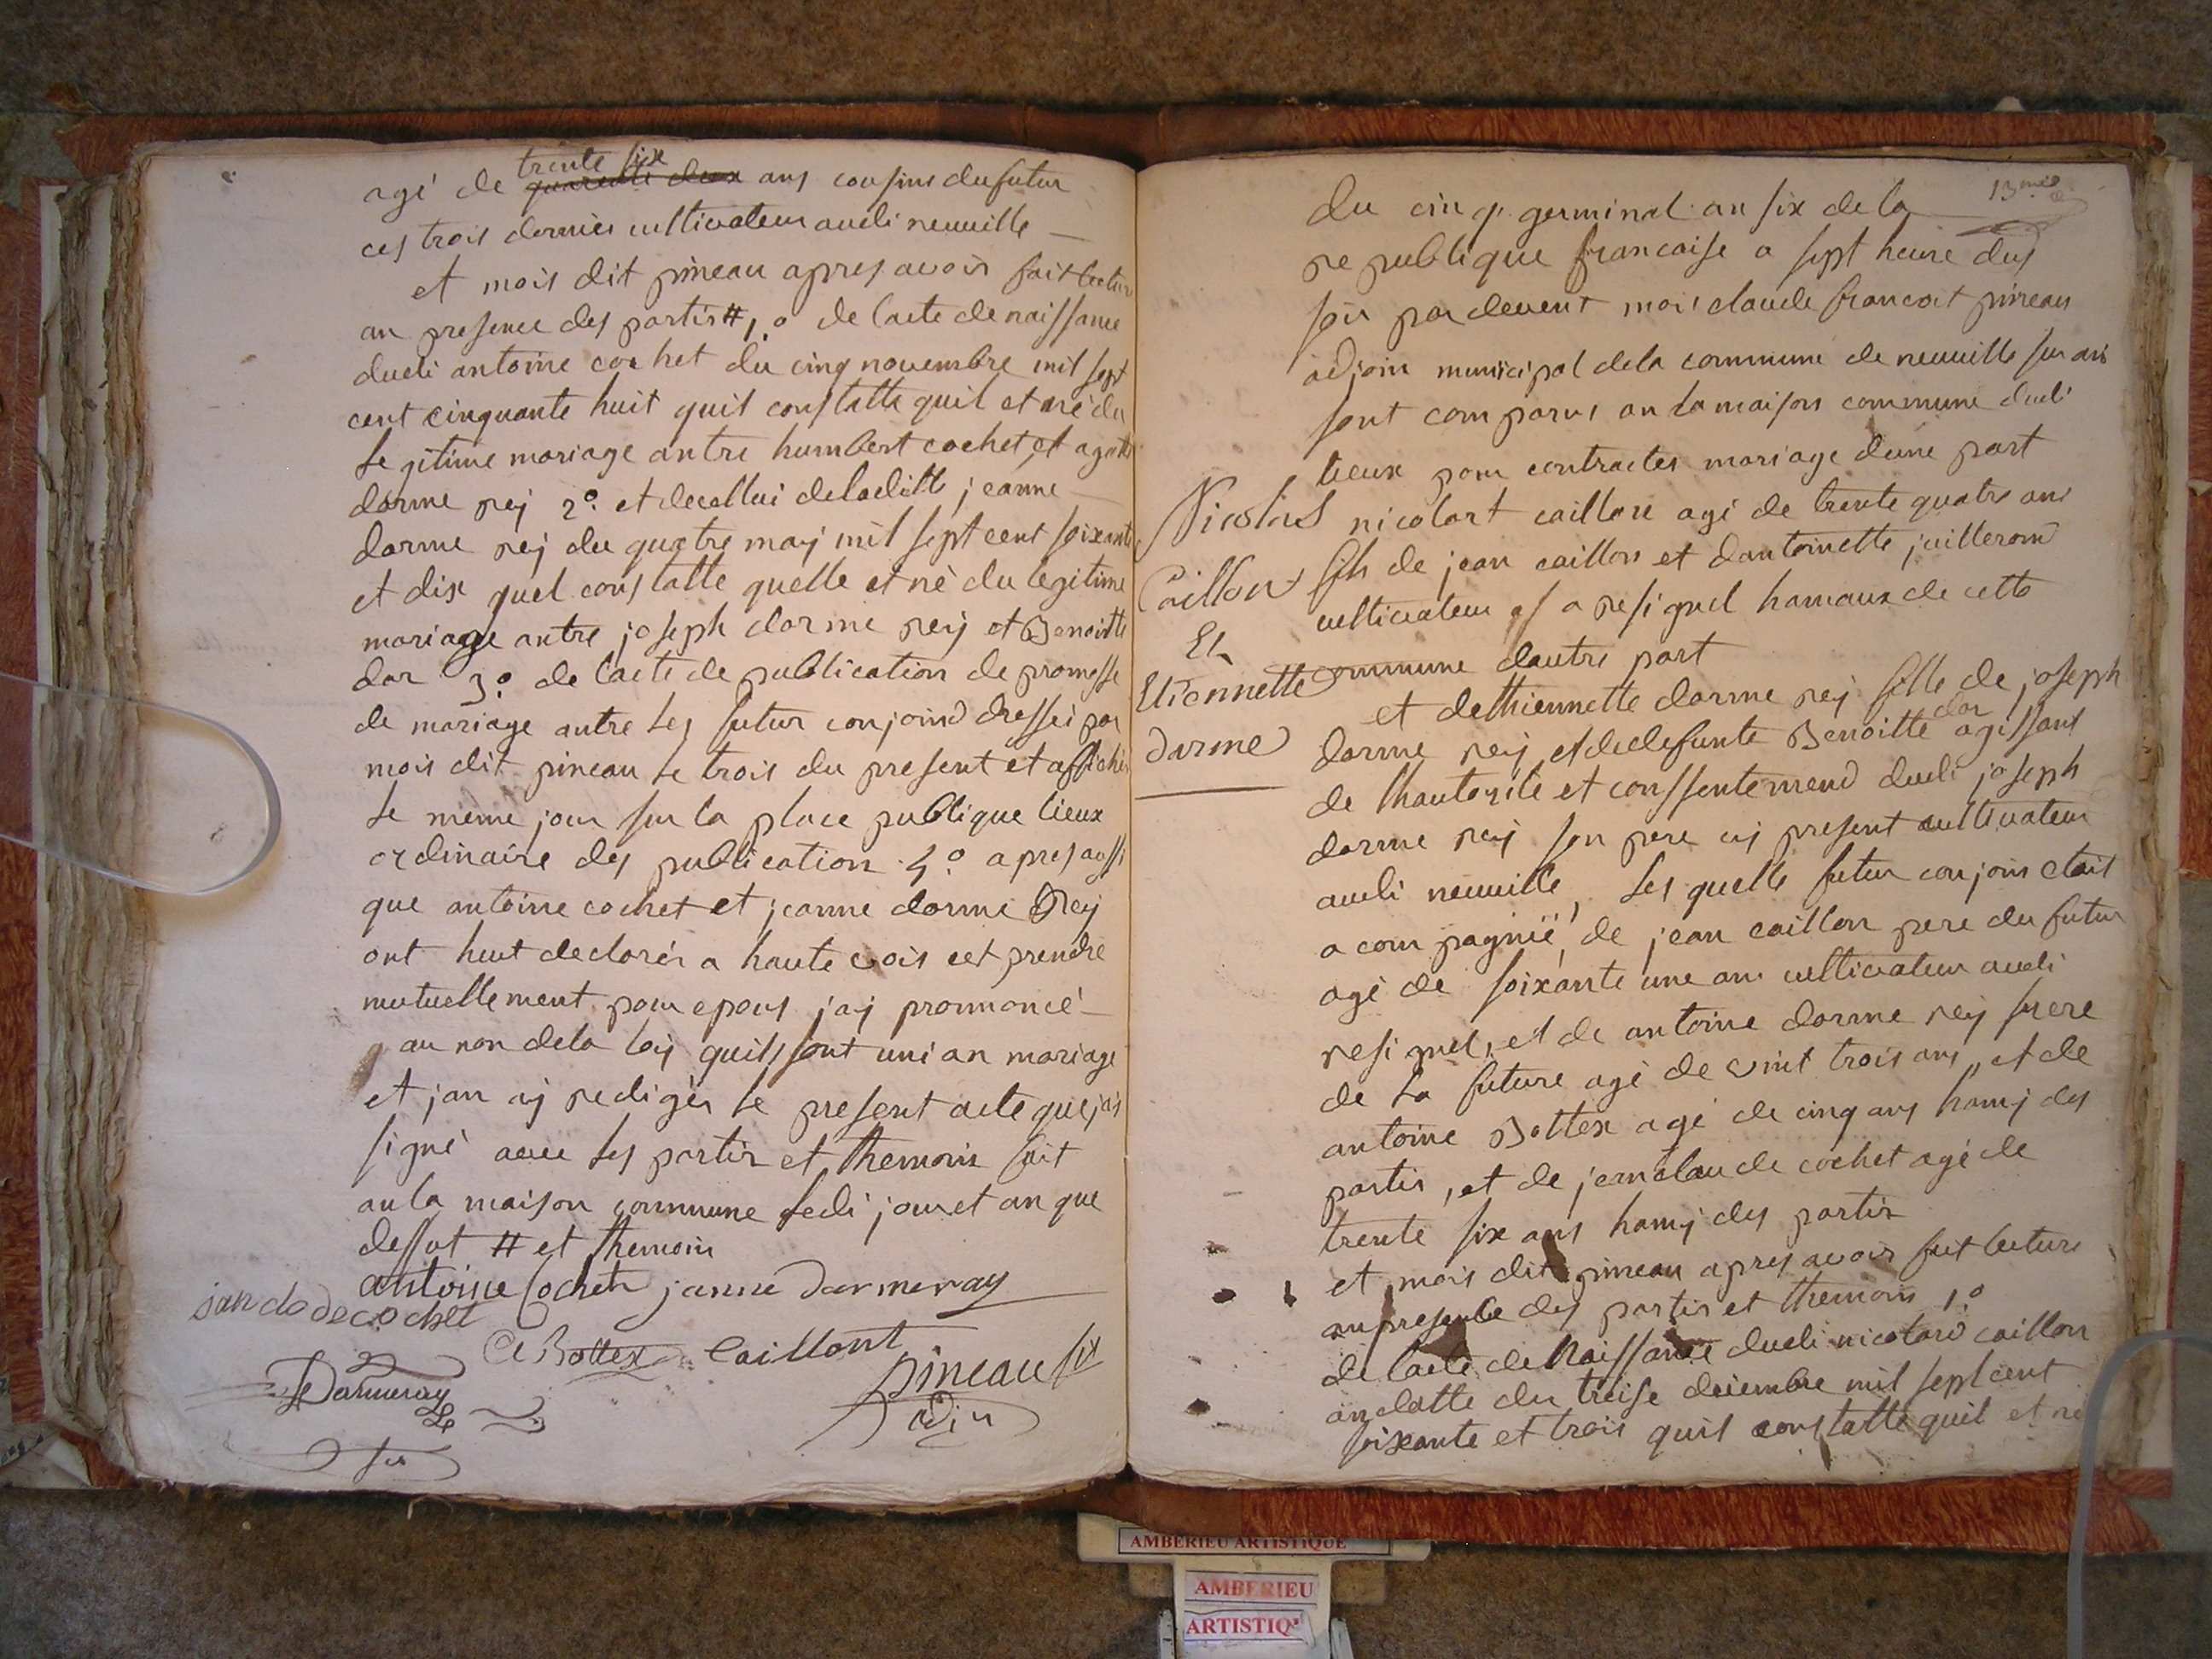 trente six
agé de quarente deux ans cousins du futur
ces trois dernier cultivateur audi neuville
et mois dit pineau apres avoir fait lectur
an presence des partis # 1.o de lacte de naissance
dudi antoine cochet du cinq novembre mil sept
cent cinquante huit quil constatte quil et né du
legitime mariage antre humbert cochet et agathe
dorme rey 2.o et decellui deladitte jeanne
dorme rey du quatre may mil sept cent soixante
et dise quel constatte quelle et né du legitime
mariage antre joseph dorme rey et Benoitte
dor 3.o de lacte de publication de promesse
de mariage antre les futur conjoind dressei par
mois dit pineau le trois du present et affiche
le meme jour sur la place publique lieux
ordinaire des publication 4.o apres aussi
que antoine cochet et jeanne dorme Rey
ont heut declarer a haute vois cet prendre
mutuellement pour epous jaij pronnoncé
au non dela loij quils sont uni an mariage
et jan aij rediger le present acte que jais
signé avec les partis et themoin fait
au la maison commune ledi jour et an que
dessut # et themoin
antoine Cochet janne darmeray
jan clo de cochet
A Bottex Caillont
Darmeray
pineau
adjn
13me
du cinq germinal an six de la
republique francaise a sept heure dus
soir par devent mois claude francoit pineau
adjoin municipal dela commune de neuville sur ain
sont comparus an la maison commune dudi
lieux pour contracter mariage dune part
Nicolas
Caillon
Et
Etiennette
darme
nicolart caillon agé de trente quatre ans
fils de jean caillon et dantoinette juillerond
cultivateur a resignel hamaux de cette
commune dautre part
et dethiennette dorme rey fille de joseph
dor
dorme rey et dedefunte Benoitte agissant
de lhautorité et conssentemend dudi joseph
dorme rey son pere cij present cultivateur
audi neuville, les quelle futur conjoin etait
acompagnié de jean caillon pere du futur
agé de soixante une ans cultivateur audi
resignel, et de antoine dorme rey frere
de la future agé de vint trois ans, et de
antoine Bottex agé de cinq ans hamij des
partis, et de jean claude cochet agé de
trente six ans hamij des partis
et mois dit pineau apres avoir fait lecture
an presence des partis et themoin 1.o
de lacte de Naissance dudi nicolard caillon
an datte du treise decembre mil sept cent
soixante et trois quil constatte quil et né
AMBERIEU ARTISTIQUE
AMBERIEU
ARTISTIQ